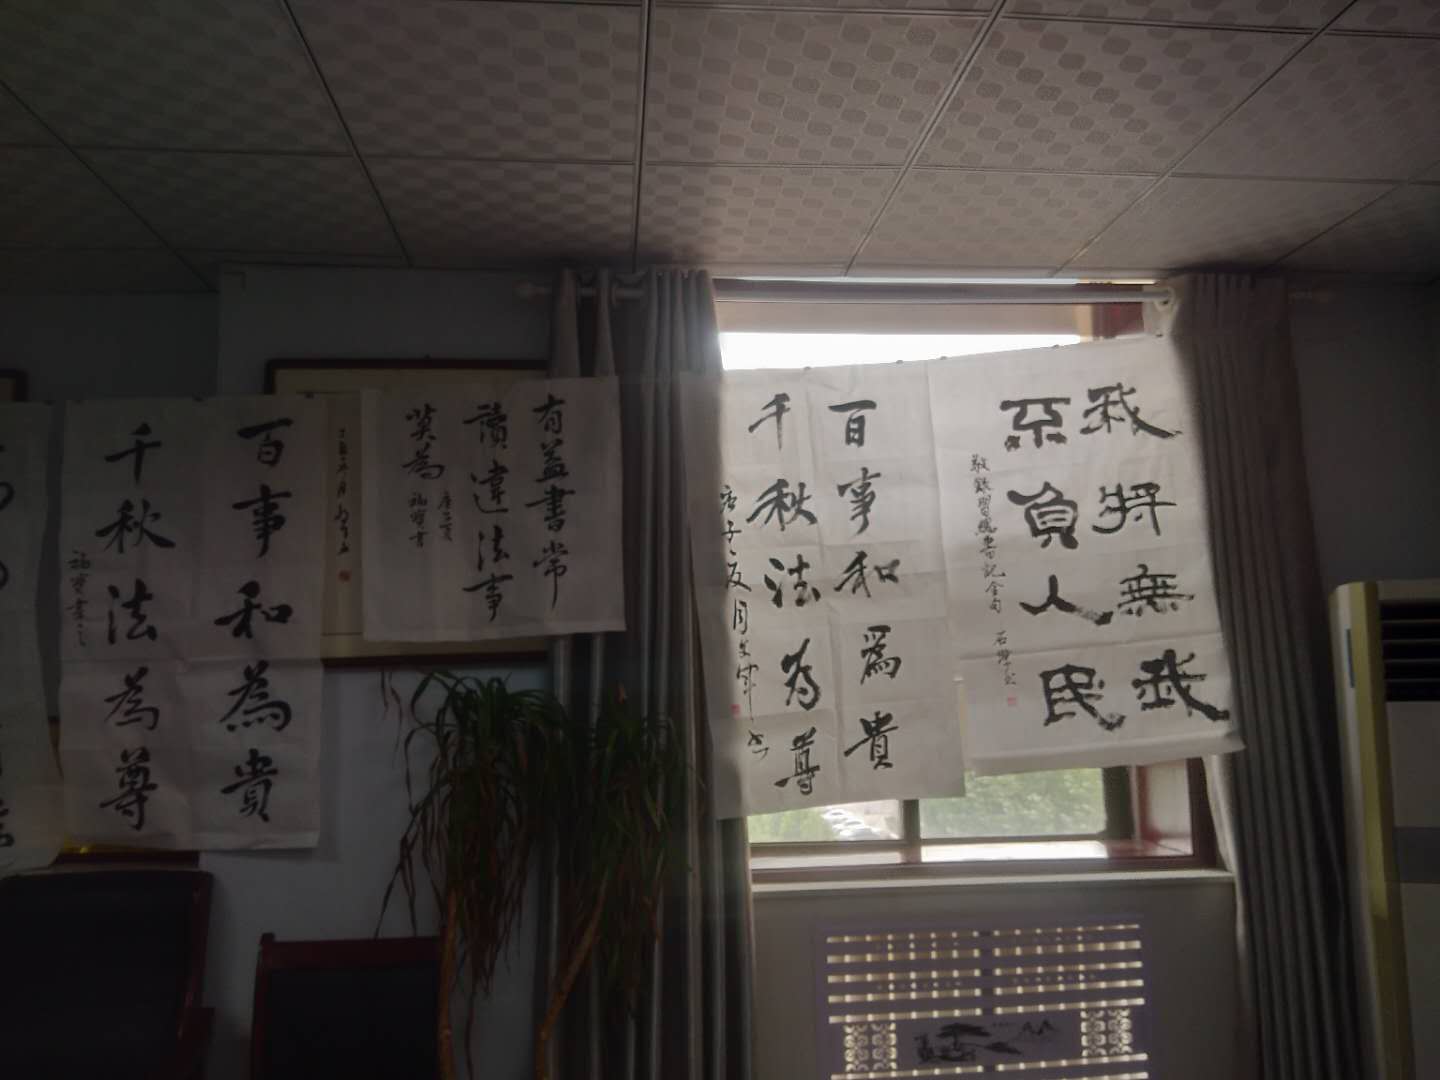 我将無我
不負人民
敬錄習總書記金句
百事和為貴
千秋法为尊
庚子夏月
有益書常
讀違法事
莫為
福寶書
百事和為貴
千秋法為尊
福寶書之